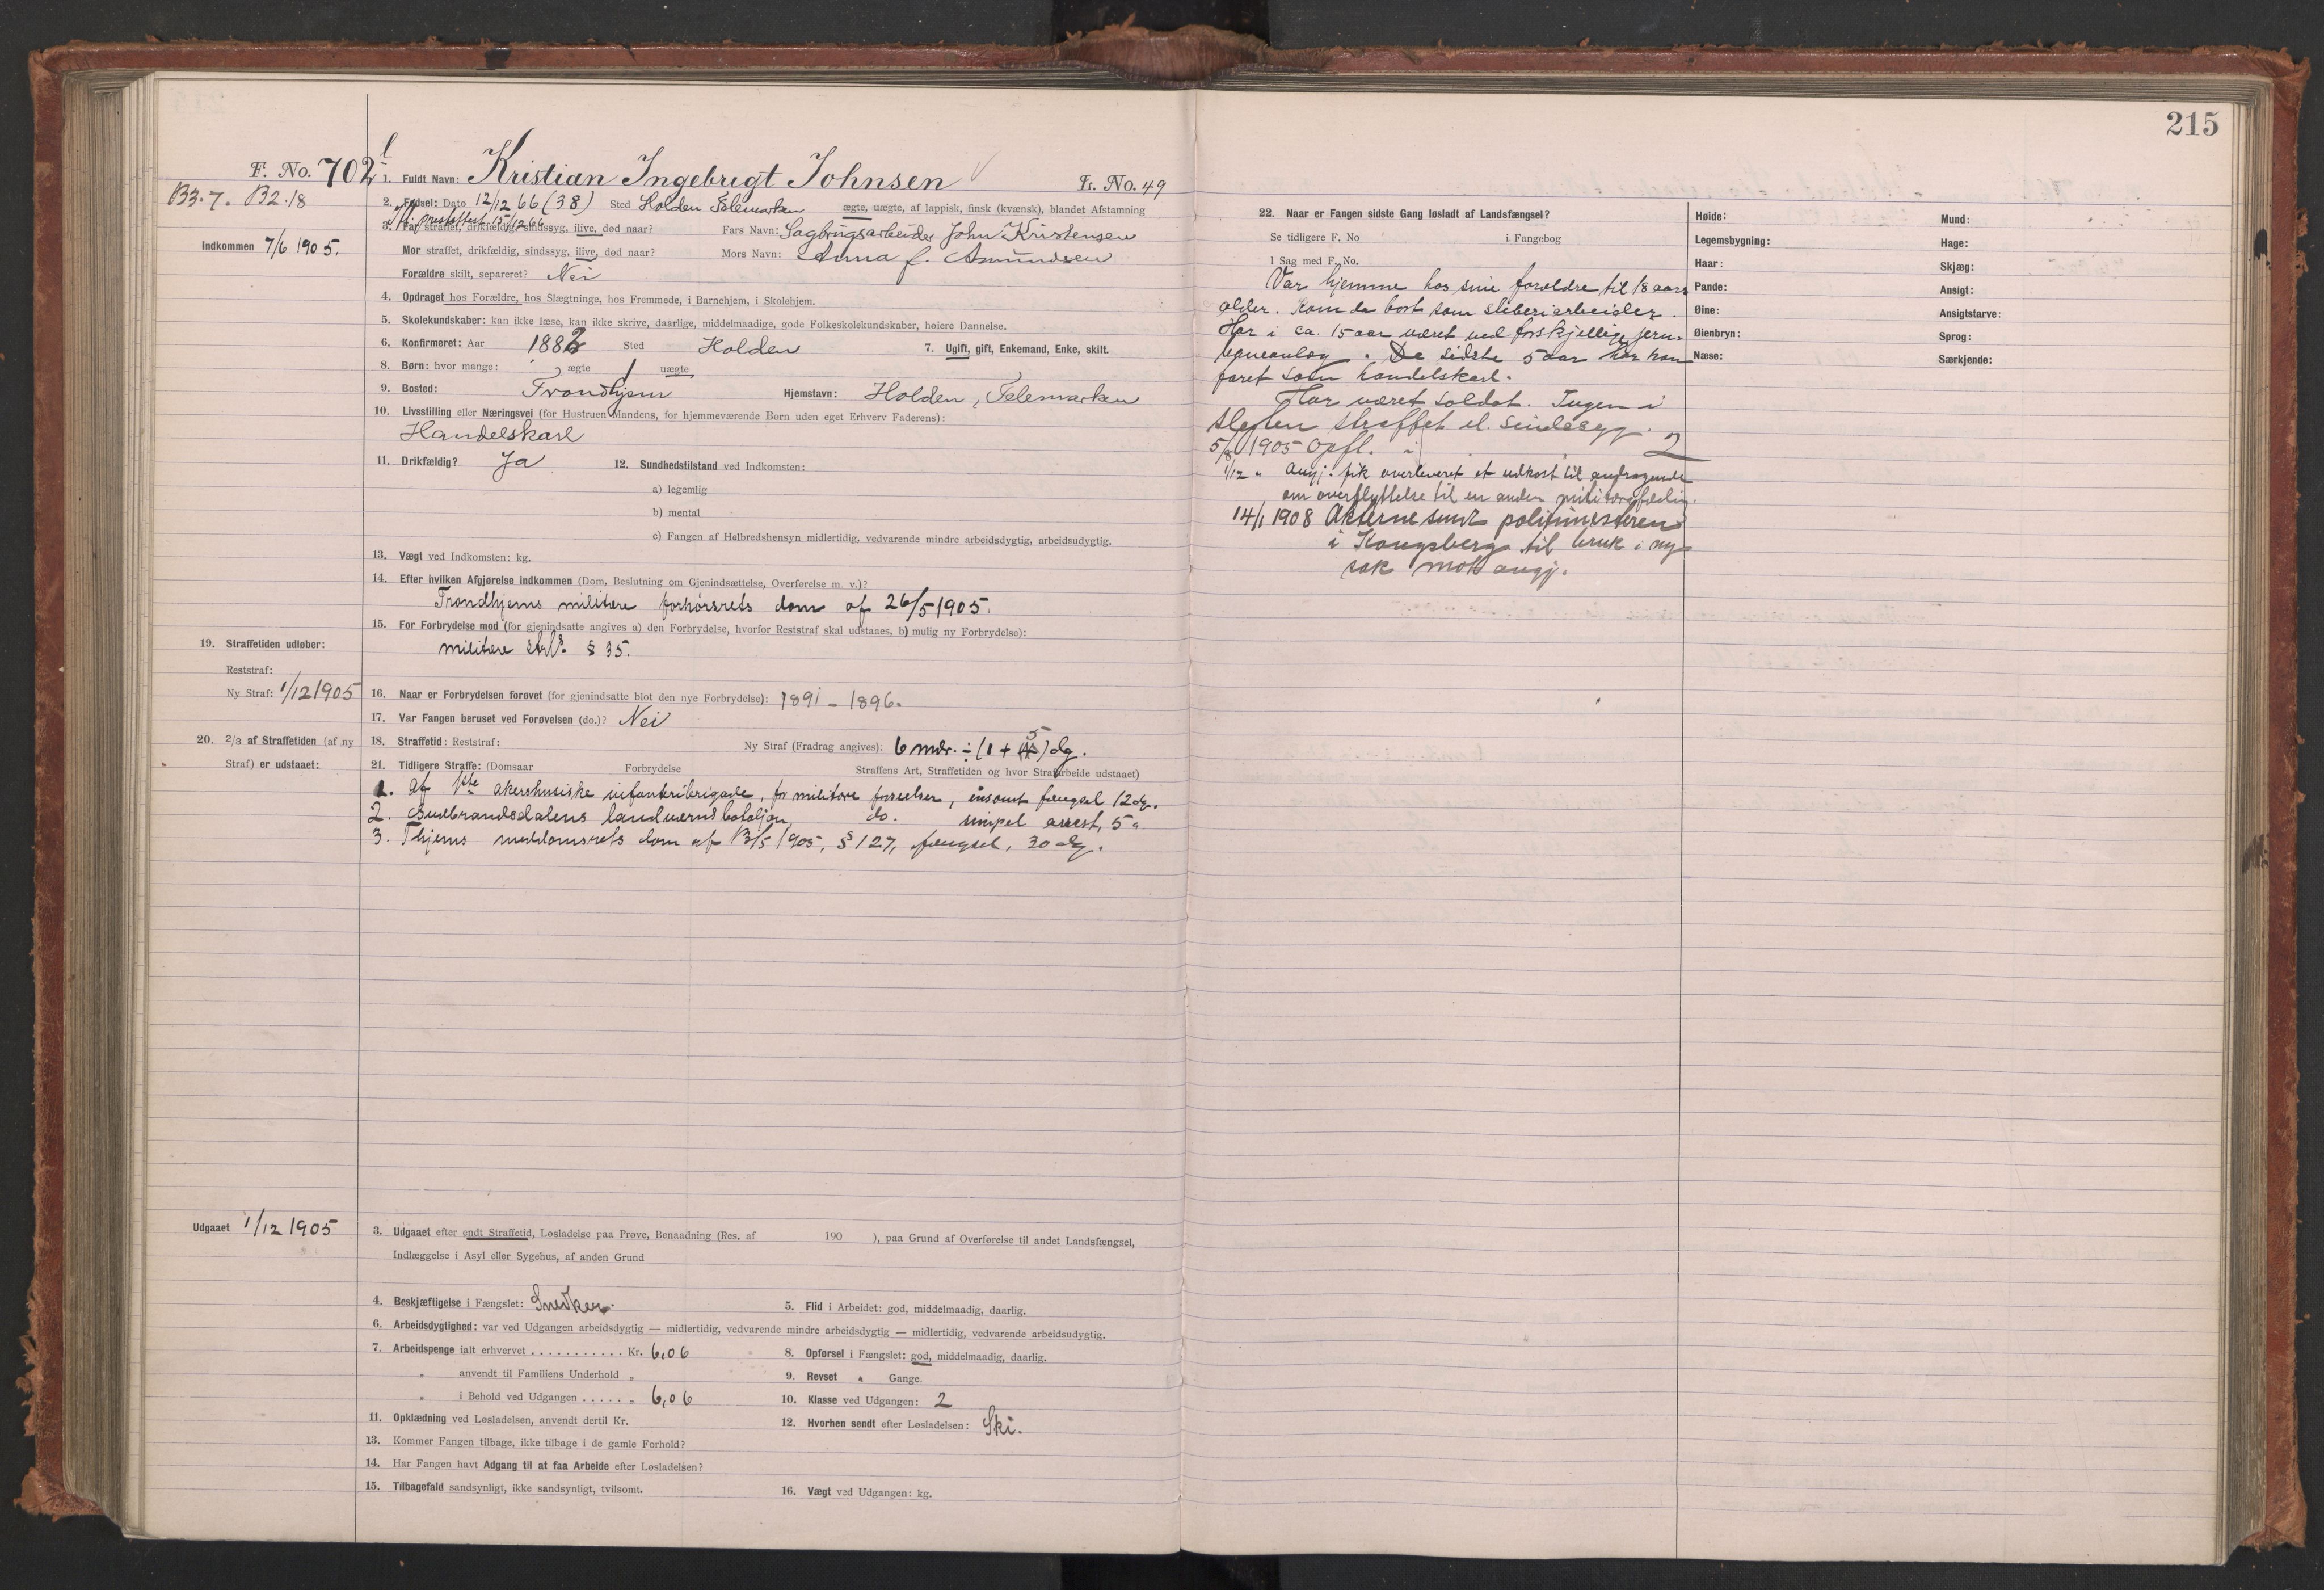 215
F. No. 702
1. Fuldt Navn: Kristian Ingebrigt Johnsen
Fr. No. 49
B3.7. B2.18
2. Fødsel: Dato 12/12 66 (38) Sted Holden Telemarken ægte, uægte, af lappisk, finsk (kvænsk), blandet Afstamning
prestattest 15/12 66
3. Far straffet, drikfældig, sindssyg, ilive, død naar? Fars Navn: Sagbrugsarbeider John Kristensen
Indkommen 7/6 1905.
Mor straffet, drikfældig, sindssyg, ilive, død naar? Mors Navn: Anna f. Asmundsen
Forældre skilt, separeret? Nei
4. Opdraget hos Forældre, hos Slægtninge, hos Fremmede, i Barnehjem, i Skolehjem.
5. Skolekundskaber: kan ikke læse, kan ikke skrive, daarlige, middelmaadige, gode Folkeskolekundskaber, høiere Dannelse.
6. Konfirmeret: Aar 1882 Sted Holden 7. Ugift, gift, Enkemand, Enke, skilt.
8. Børn: hvor mange: ægte 1 uægte
9. Bosted: Trondhjem Hjemstavn: Holden, Telemarken
10. Livsstilling eller Næringsvei (for Hustruen Mandens, for hjemmeværende Børn uden eget Erhverv Faderens):
Handelskarl
11. Drikfældig? Ja 12. Sundhedstilstand ved Indkomsten:
a) legemlig
b) mental
c) Fangen af Helbredshensyn midlertidig, vedvarende mindre arbeidsdygtig, arbeidsudygtig.
13. Vægt ved Indkomsten: kg.
14. Efter hvilken Afgjørelse indkommen (Dom, Beslutning om Gjenindsættelse, Overførelse m. v.)?
Trondhjems militære forhørsrets dom af 26/5 1905.
15. For Forbrydelse mod (for gjenindsatte angives a) den Forbrydelse, hvorfor Reststraf skal udstaaes, b) mulig ny Forbrydelse):
19. Straffetiden udløber:
militære strl. § 35.
Reststraf:
Ny Straf: 1/12 1905
16. Naar er Forbrydelsen forøvet (for gjenindsatte blot den nye Forbrydelse): 1891 - 1896.
17. Var Fangen beruset ved Forøvelsen (do.)? Nei
20. 2/3 af Straffetiden (af ny
Straf) er udstaaet:
18. Straffetid: Reststraf: Ny Straf (Fradrag angives): 6 mdr. ÷ (1 + 5) dg.
21. Tidligere Straffe: (Domsaar Forbrydelse Straffens Art, Straffetiden og hvor Strafarbeide udstaaet)
1. Af 1ste akershusiske infanteribrigade, for militære forseelser, ensomt fængsel 12 dg.
2. Gudbrandsdalens landværnsbataljon, do. simpel arrest, 5 "
3. Thjems meddomsrets dom af 13/5 1905, § 127, fængsel, 30 dg.
Udgaaet 1/12 1905
3. Udgaaet efter endt Straffetid, Løsladelse paa Prøve, Benaadning (Res. af 190 ), paa Grund af Overførelse til andet Landsfængsel,
Indlæggelse i Asyl eller Sygehus, af anden Grund
4. Beskjæftigelse i Fængslet: Snedker. 5. Flid i Arbeidet: god, middelmaadig, daarlig.
6. Arbeidsdygtighed: var ved Udgangen arbeidsdygtig — midlertidig, vedvarende mindre arbeidsdygtig — midlertidig, vedvarende arbeidsudygtig.
7. Arbeidspenge ialt erhvervet ........... Kr. 6,06 8. Opførsel i Fængslet: god, middelmaadig, daarlig.
" anvendt til Familiens Underhold " 9. Revset " Gange.
" i Behold ved Udgangen ..... " 6,06 10. Klasse ved Udgangen: 2
11. Opklædning ved Løsladelsen, anvendt dertil Kr. 12. Hvorhen sendt efter Løsladelsen: Ski.
13. Kommer Fangen tilbage, ikke tilbage i de gamle Forhold?
14. Har Fangen havt Adgang til at faa Arbeide efter Løsladelsen?
15. Tilbagefald sandsynligt, ikke sandsynligt, tvilsomt. 16. Vægt ved Udgangen: kg.
22. Naar er Fangen sidste Gang løsladt af Landsfængsel?
Se tidligere F. No i Fangebog
I Sag med F. No.
Var hjemme hos sine forældre til 18 aars
alder. Kom da bort som sliberiarbeider.
Har i ca. 15 aar været ved forskjellige jern-
baneanlæg. De sidste 5 aar har han
faret som handelskarl.
Har været soldat. Ingen i
slegten straffet el. sindssyg.
5/8 1905 Opfl. i 2
1/12 " Angj. fik overleveret et udkast til andragende
om overflyttelse til en anden militæravdeling.
14/1 1908 Akterne sendt politimesteren
i Kongsberg til bruk i ny
sak mot angj.
Høide:
Legemsbygning:
Haar:
Pande:
Øine:
Øienbryn:
Næse:
Mund:
Hage:
Skjæg:
Ansigt:
Ansigtsfarve:
Sprog:
Særkjende: